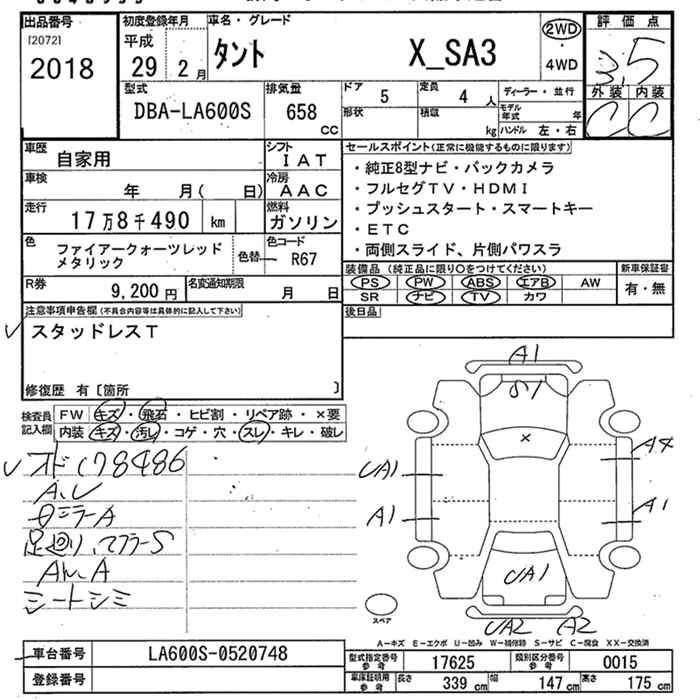 出品番号
[2072]
2018
初度登録年月
平成
29年 2月
車名・グレード
タント X_SA3
2WD
・
4WD
評価点
3.5
外装 内装
C C
型式
DBA-LA600S
排気量
658 cc
ドア 5
定員 4 人
形状
積載 kg
ディーラー・並行
モデル年式 年
ハンドル 左・右
車歴
自家用
シフト
IAT
車検
年 月( 日)
冷房
AAC
走行
17万8千490 km
燃料
ガソリン
色
ファイアークォーツレッド
メタリック
色替
色コード
R67
R券
9,200円
名変通知期限
月 日
セールスポイント(正常に機能するものに限ります)
・純正8型ナビ・バックカメラ
・フルセグTV・HDMI
・プッシュスタート・スマートキー
・ETC
・両側スライド、片側パワスラ
装備品(純正品に限り○をつけてください)
PS PW ABS エアB AW
SR ナビ TV カワ
新車保証書
有・無
後日品
注意事項申告欄(不具合内容等は具体的に記入して下さい)
スタッドレスT
修復歴 有〔箇所 〕
検査員
記入欄
FW キズ・飛石・ヒビ割・リペア跡・×要
内装 キズ・汚レ・コゲ・穴・スレ・キレ・破レ
オド178486
A.U
足廻り、マフラーS
シートシミ
A1
S1
×
UA1
A4
A1
A1
UA1
UA2
A2
スペア
A―キズ E―エクボ U―凹み W―補修跡 S―サビ C―腐食 XX―交換済
車台番号
LA600S-0520748
登録番号
型式指定番号
参考
17625
類別区分番号
参考
0015
車庫証明用
参考
長さ 339 cm
幅 147 cm
高さ 175 cm